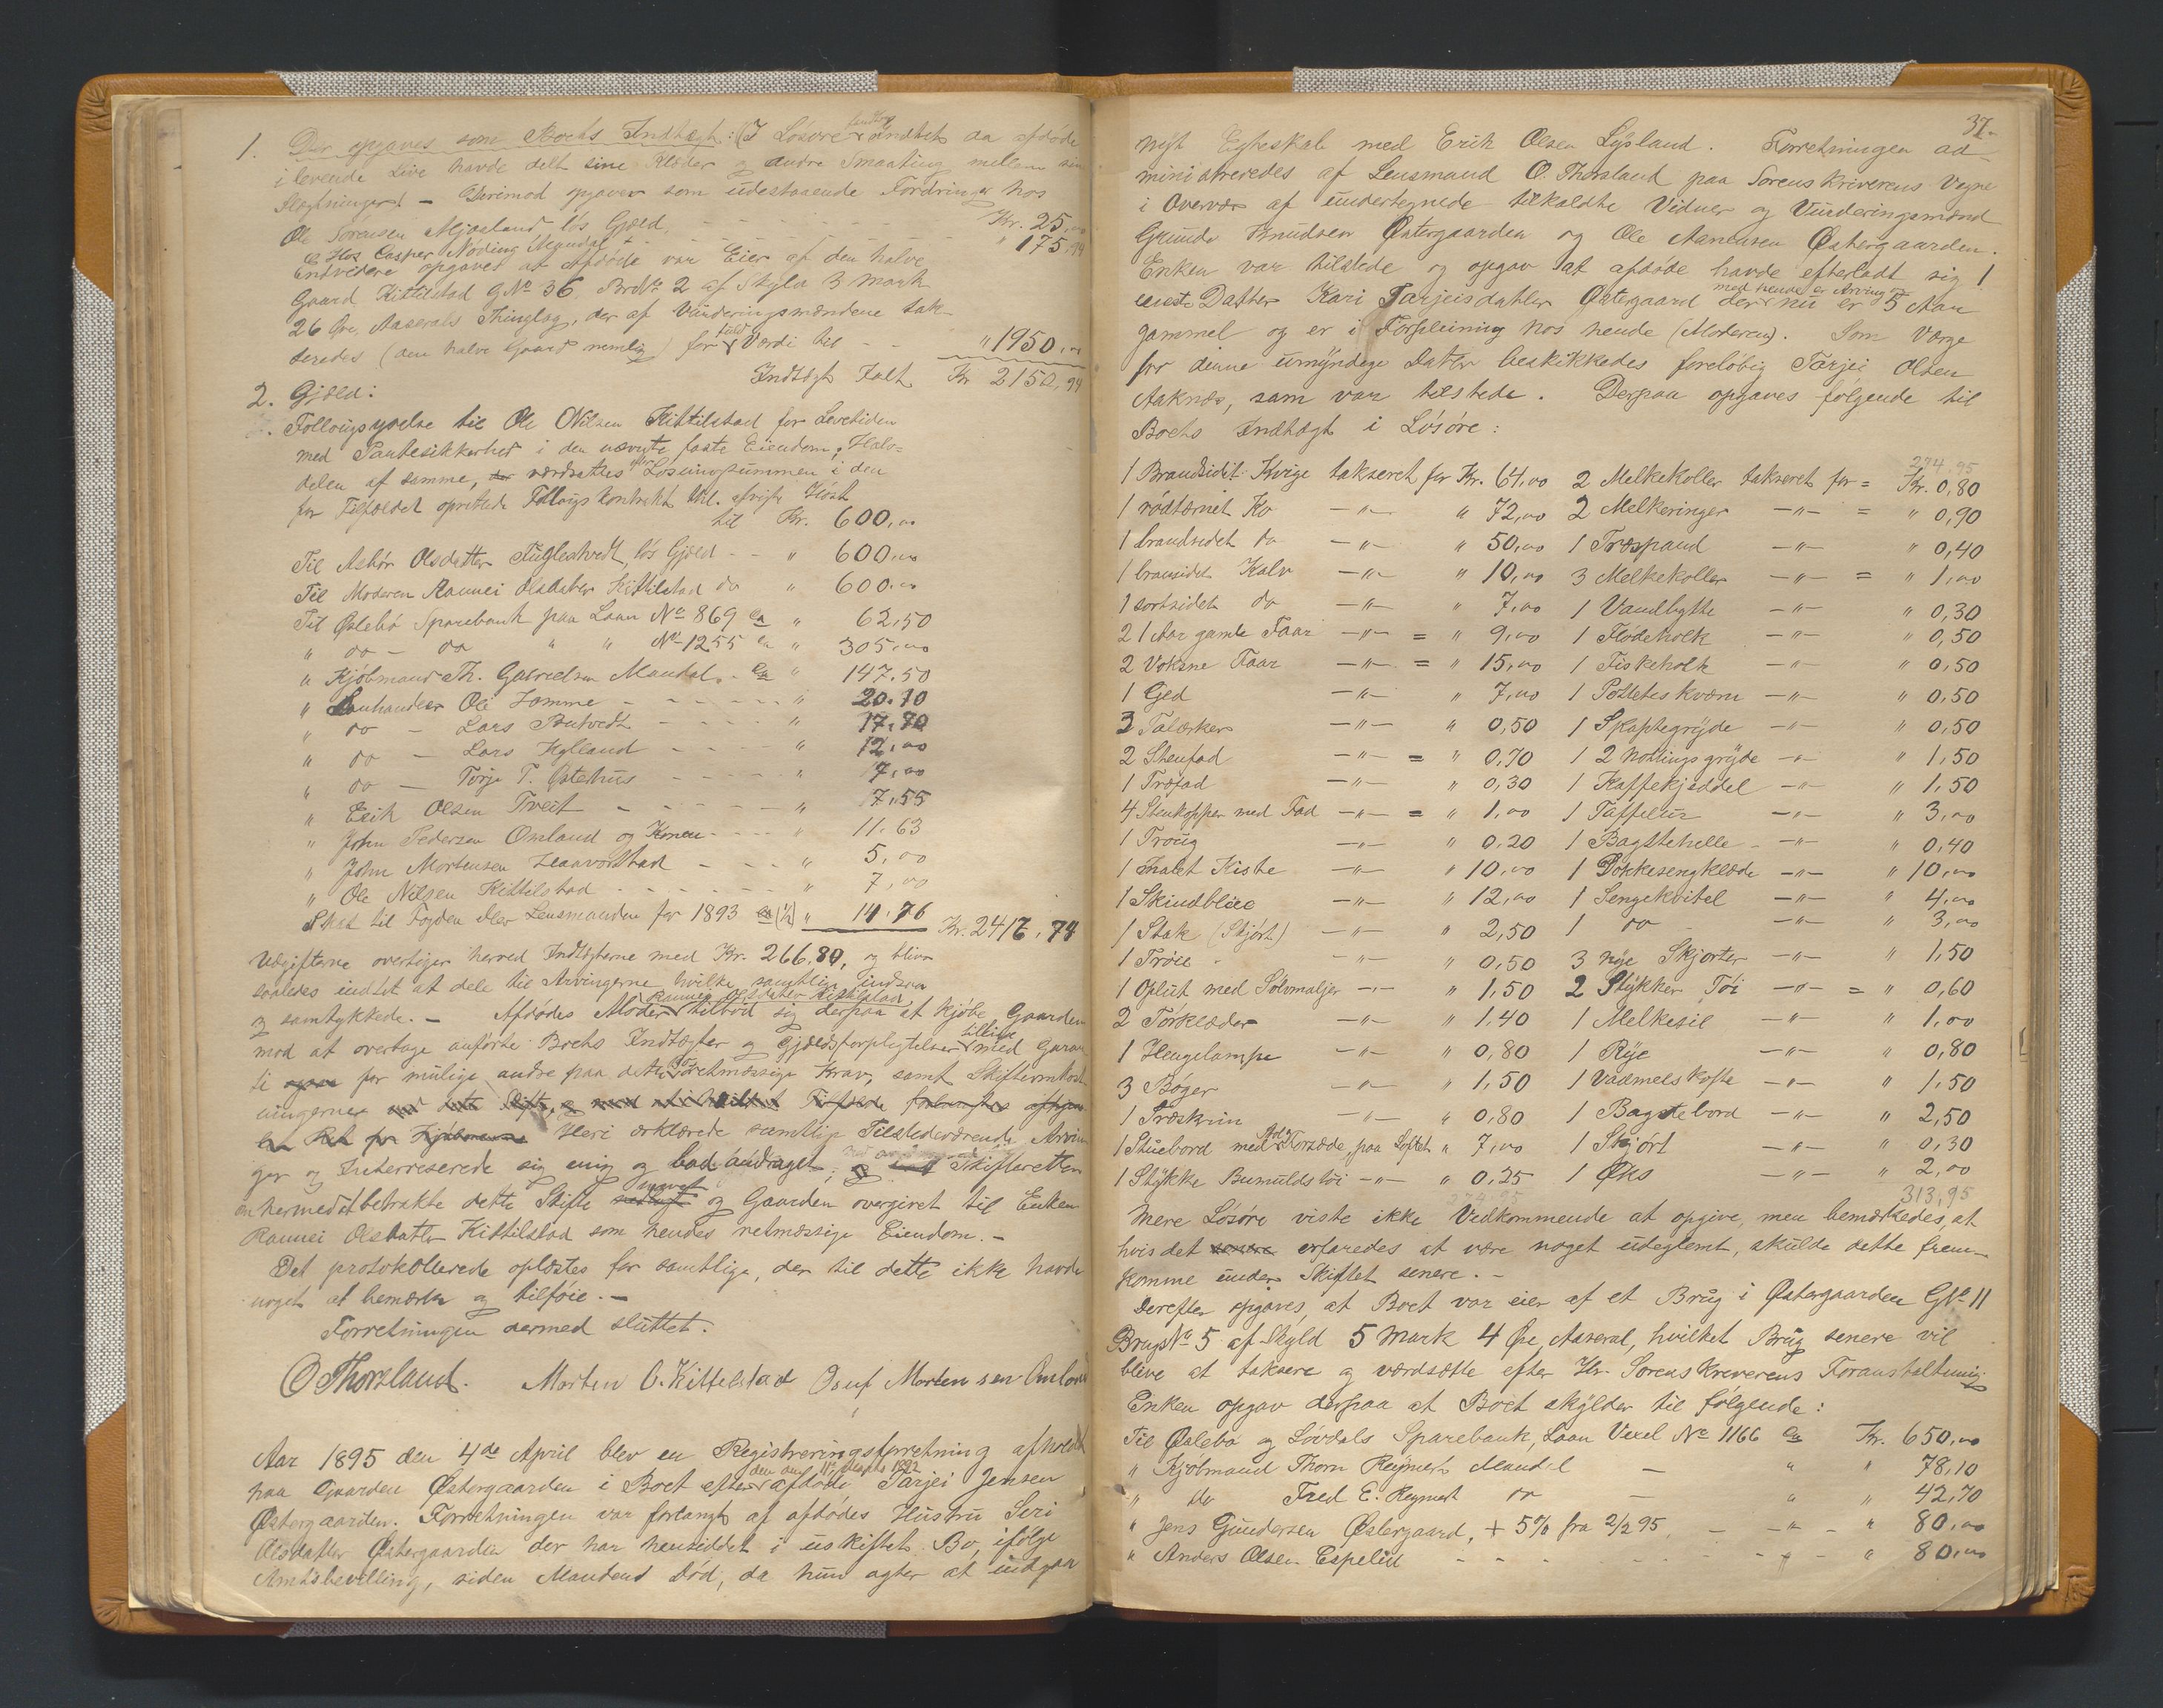 1. Der opgaves som Boets Indtægt: (I Løsøre Indtet da afdøde
i levende Live havde delt sine Klæder og andre Smaating mellem sine
Slægtninger) - Derimod opgaves som udestaaende Fordringer hos
Ole Sørensen Mjaaland løs Gjæld - - - Kr. 25,00
Hos Casper Nøding Mandal - - - " 175,94
Endvidere opgaves at Afdøde var Eier af den halve
Gaard Kittilstad GNo 36, BrNo 2 af Skyld 3 Mark
26 Øre, Aaserals Thinglag, der af Vurderingsmændene tak-
seredes (den halve Gaard nemlig) for fuld Værdi til - - " 1950,00
Indtægt Ialt Kr 2150,94
2. Gjæld:
Follougsydelse til Ole Nilsen Kittilstad for Levetiden
med Pantesikkerhed i den nævnte faste Eiendom, Halv-
delen af samme, værdsattes efter Løsningssummen i den
for Tilfældet oprettede Follougskontrakt
til Kr. 600,00
Til Asbør Olsdatter Fuglestvedt, løs Gjæld - - " 600,00
Til Moderen Raunei Olsdatter Kittilstad do " 600,00
Til Øslebø Sparebank paa Laan No 869 ca " 62,50
" do - do " " No 1255 ca " 305,00
" Kjøbmand Th. Gabrielsen Mandal - ca " 147.50
" Lanhandler Ole Homme - - - " 20.10
" do - Lars Butvedt - - - " 17.70
" do - Lars Kylland - - - " 12,00
" do - Torje T. Østehus - - - " 7,00
" Erik Olsen Tveit - - - " 7,55
" John Pedersen Omland og Konen - - - " 11.63
" John Mortensen Haaverstad - - - " 5,00
" Ole Nilsen Kittilstad - - - " 7,00
Skat til Fogden eller Lensmanden for 1893 ca (1/2) " 14.76 Kr. 2417,74
Udgifterne overstiger herved Indtægterne med Kr. 266.80, og bliver
saaledes indtet at dele til Arvingerne hvilke samtlige indsaa
og samtykkede. - Afdødes Moder Raunei Olsdatter Kittilstad tilbød sig derpaa at kjøbe Gaarden
mod at overtage anførte Boets Indtægter og Gjældsforpligtelser tillige med Garan-
ti for mulige andre paa dette retmæssige Krav, samt Skifteomkost-
ningerne
Heri erklærede samtlige Tilstedeværende Arvin-
ger og Interreserede sig enig og bad andraget, Skifteretten
om hermed at betrakte dette Skifte og Gaarden overgivet til Enken
Raunei Olsdatter Kittilstad som hendes retmæssige Eiendom. -
Det protokollerede oplæstes for samtlige, der til dette ikke havde
noget at bemærke og tilføie. -
Forretningen dermed sluttet.
O Thorsland. Morten O. Kittelstad Osuf Mortensen Omland
Aar 1895 den 4de April blev en Registreringsforretning afholdt
paa Gaarden Østergaarden i Boet efter afdøde Tarjei Jensen
Østergaarden. Forretningen var forlangt af afdødes Hustru Siri
Olsdatter Østergaarden der har hensiddet i uskiftet Bo, ifølge
Amtsbevilling, siden Mandens Død, da hun agter at indgaa
37.
nyt Egteskab med Erik Olsen Lysland. Forretningen ad-
ministreredes af Lensmand O. Thorsland paa Sorenskriverens Vegne
i Overvær af undertegnede tilkaldte Vidner og Vurderingsmænd
Gunde Knudsen Østergaarden og Ole Aanensen Østergaarden.
Enken var tilstede og opgav at afdøde havde efterladt sig 1
eneste Datter Kari Tarjeisdatter Østergaard der med hende er Arving nu er 5 Aar
gammel og er i Forpleining hos hende (Moderen). Som Værge
for denne umyndige Datter beskikkedes foreløbig Tarjei Olsen
Aaknæs, som var tilstede. Derpaa opgaves følgende til
Boets Indtægt i Løsøre:
274,95
1 Brandsidet Kvige takseret for Kr. 64,00 2 Melkekoller takseret for = Kr. 0,80
1 rødtærnet Ko -"- " 72,00 2 Melkeringer -"- = " 0,90
1 brandsidet do -"- " 50,00 1 Træspand -"- " 0,40
1 bransidet Kalv -"- " 10,00 3 Melkekoller -"- = " 1,00
1 sortsidet do -"- " 7,00 1 Vandbytte -"- " 0,30
2 1 Aar gamle Faar -"- = " 9,00 1 Flødeholk -"- " 0,50
2 Voksne Faar -"- = " 15,00 1 Fiskeholk -"- " 0,50
1 Gjed -"- " 7,00 1 Potteteskværn -"- " 0,50
3 Talærker -"- " 0,50 1 Skaptegryde -"- " 0,50
2 Stenfad -"- = " 0,70 1 2 Nottingsgryde -"- " 1,50
1 Træfad -"- " 0,30 1 Kaffekjeddel -"- " 1,50
4 Stenkopper med Fad -"- = " 1,00 1 Taffelur -"- " 3,00
1 Troug -"- " 0,20 1 Bagstehelle -"- " 0,40
1 malet Kiste -"- " 10,00 1 Dokkesengklæde -"- " 10,00
1 Skindblæe -"- " 12,00 1 Sengekvitel -"- " 4,00
1 Stak (Skjørt) -"- " 2,50 1 do -"- " 3,00
1 Trøie -"- " 0,50 3 nye Skjorter -"- " 1,50
1 Oplut med Sølvmaljer -"- " 1,50 2 Stykker Tøi -"- = " 0,60
2 Tørklæder -"- " 1,40 1 Melkesil -"- " 1,00
1 Hengelampe -"- " 0,80 1 Rye -"- " 0,80
3 Bøger -"- " 1,50 1 Vadmelskofte -"- " 1,50
1 Træskrin -"- " 0,80 1 Bagstebord -"- " 2,50
1 Stuebord med Korsæde, paa Loftet " 7,00 1 Skjørt -"- " 0,30
1 Stykke Bumuldstøi -"- " 0,25 1 Øks -"- " 2,00
313,95
Mere Løsøre viste ikke Vedkommende at opgive, men bemærkedes, at
hvis det erfaredes at være noget udeglemt, skulde dette frem-
komme under Skiftet senere. -
Derefter opgaves, at Boet var eier af et Brug i Østergaarden GNo 11
BrugsNo 5 af Skyld 5 Mark 4 Øre, Aaseral, hvilket Brug senere vil
blive at taksere og værdsætte efter Hr. Sorenskriverens Foranstaltning.
Enken opgav derpaa at Boet skylder til følgende:
Til Øslebø og Løvdals Sparebank, Laan Vexel No 1166 ca Kr. 650,00
" Kjøbmand Thorn Reymert Mandal - " " 78,10
" do Fred E. Reymert do - " " 42,70
" Jens Gundersen Østergaard, + 5% fra 2/2 95 - -"- " 80,00
" Anders Olsen Espelid - - - " 80,00